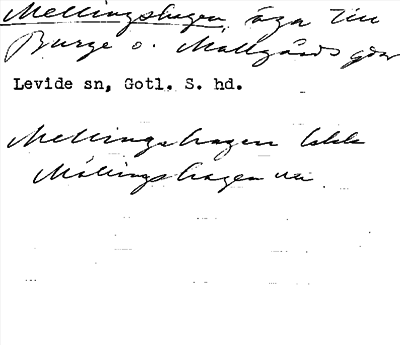 Mellingshagen, äga till
Burge o. Mallgårds gdar
Levide sn, Gotl. S. hd.
Mellingshagen
Mällingshagen